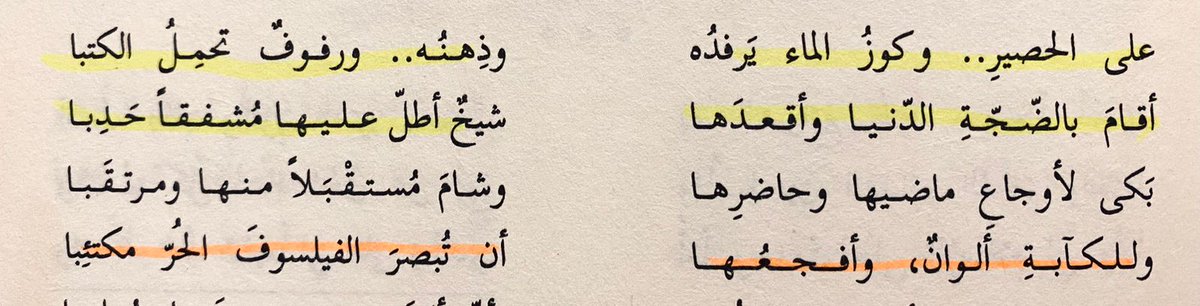 على الحصيرِ.. وكوزُ الماء يَرفدُه وذِهنُه.. ورفوفٌ تحمِلُ الكتبا
أقامَ بالضّجّةِ الدّنيا وأقعدَها شيخٌ أطلّ عليها مُشفقاً حَدِبا
بَكى لأوجاعِ ماضيها وحاضرِها وشامَ مُستقْبَلاً منها ومرتقَبا
وللكآبةِ ألوانٌ، وأفجعُها أن تُبصرَ الفيلسوفَ الحُرّ مكتئِبا